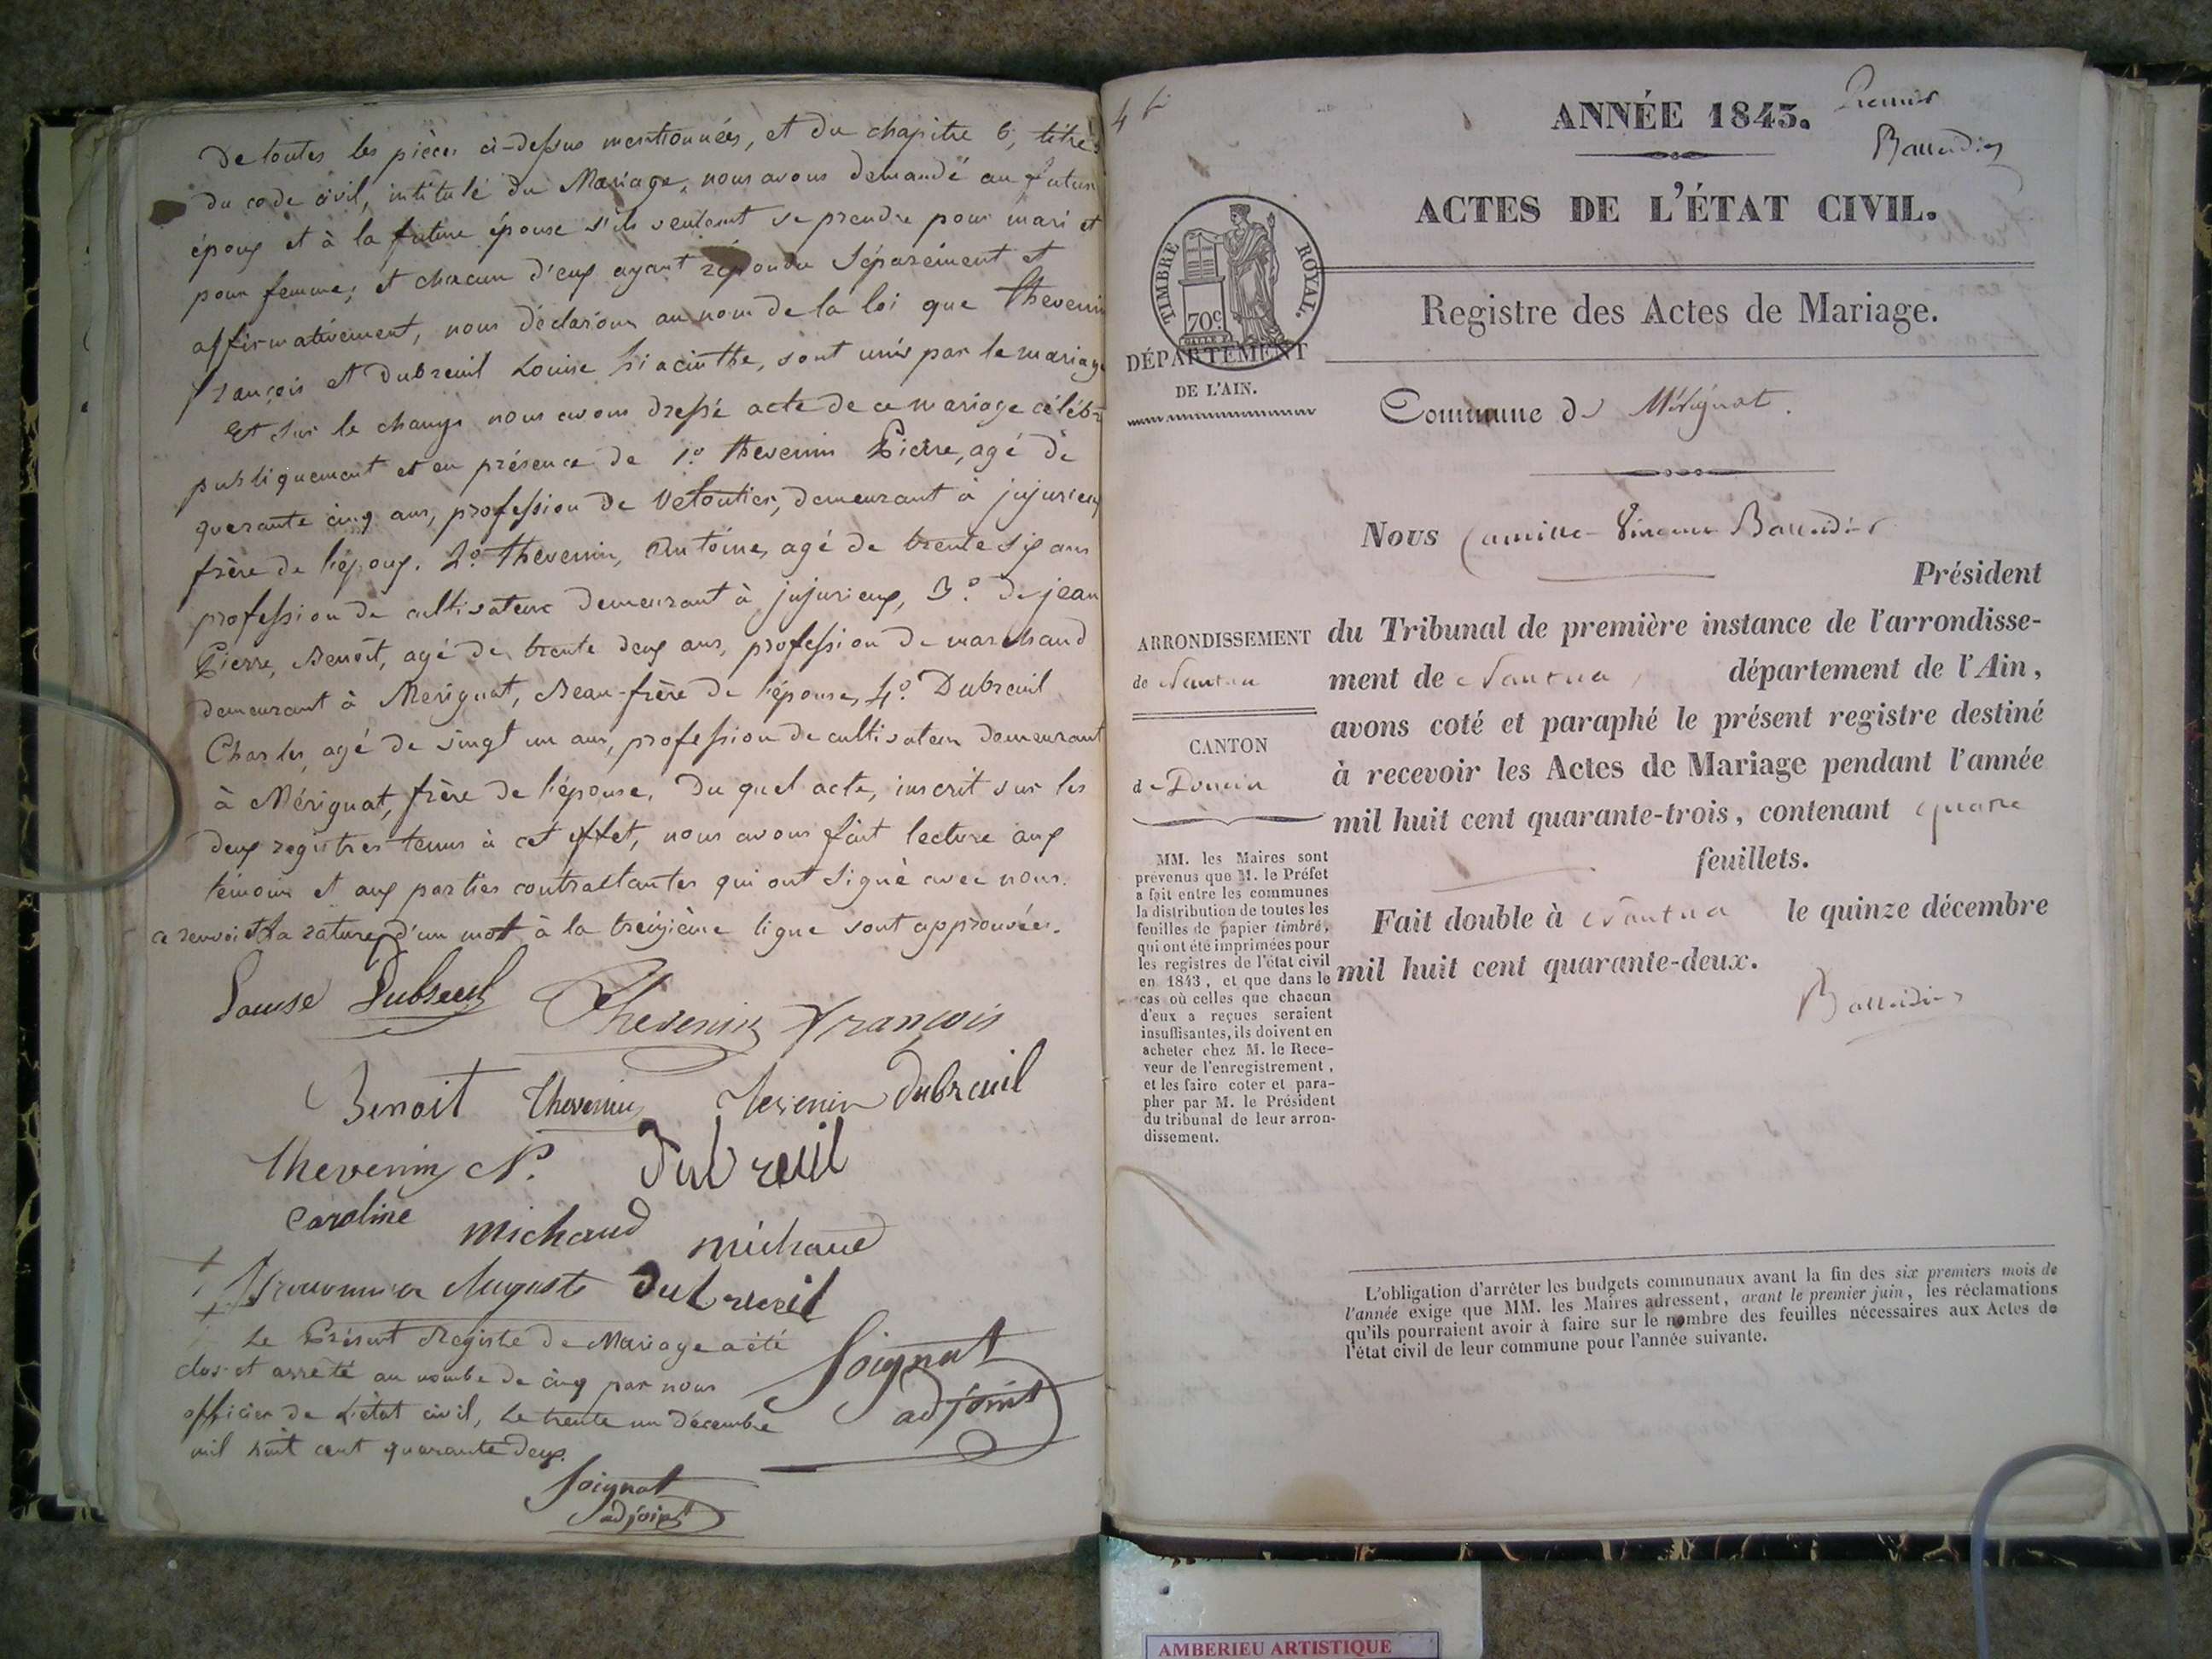 De toutes les pièces ci-dessus mentionnées, et du chapitre 6, titre
du code civil, intitulé du Mariage, nous avons demandé au futur
époux et à la future épouse s'ils veulent se prendre pour mari et
pour femme; et chacun d'eux ayant répondu séparément et
affirmativement, nous déclarons au nom de la loi que Thevenin
françois et Dubreuil Louise hiacinthe, sont unis par le mariage
Et sur le champs nous avons dressé acte de ce mariage célébr
publiquement et en présence de 1º thevenin Pierre, agé de
quarante cinq ans, profession de Veloutier, demeurant à jujurieux
frère de l'époux. 2º thevenin, Antoine, agé de trente six ans
profession de cultivateur demeurant à jujurieux, 3º de jean
Pierre, Benoit, agé de trente deux ans, profession de marchand
demeurant à Mérignat, Beau-frère de l'épouse, 4º Dubreuil
Charles, agé de vingt un ans, profession de cultivateur demeurant
à Mérignat, frère de l'épouse. Du quel acte, inscrit sur les
deux registres tenus à cet effet, nous avons fait lecture aux
témoins et aux parties contractantes qui ont signé avec nous.
ce renvoi et la rature d'un mot à la treizième ligne sont approuvées.
Louise Dubreuil Thevenin François
Benoit Thevenin Tevenin Dubreuil
thevenin P. Dubreuil
Caroline michaud michaud
Auguste Dubreuil
Le Présent Registre de Mariage a été
clos et arrêté au nombre de cinq par nous
officier de l'état civil, le trente un décembre
mil huit cent quarante deux.
Soignat
adjoint
Soignat
adjoint
4 f
ANNÉE 1843.
Premier
Ballaidier
ACTES DE L'ÉTAT CIVIL.
TIMBRE ROYAL.
70c
Registre des Actes de Mariage.
DÉPARTEMENT
DE L'AIN.
Commune de Mérignat.
Nous Camille Vincent Ballaidier
Président
du Tribunal de première instance de l'arrondisse-
ment de Nantua, département de l'Ain,
avons coté et paraphé le présent registre destiné
à recevoir les Actes de Mariage pendant l'année
mil huit cent quarante-trois, contenant quatre
feuillets.
Fait double à Nantua le quinze décembre
mil huit cent quarante-deux.
Ballaidier
ARRONDISSEMENT
de Nantua
CANTON
de Poncin
MM. les Maires sont
prévenus que M. le Préfet
a fait entre les communes
la distribution de toutes les
feuilles de papier timbré,
qui ont été imprimées pour
les registres de l'état civil
en 1843, et que dans le
cas où celles que chacun
d'eux a reçues seraient
insuffisantes, ils doivent en
acheter chez M. le Rece-
veur de l'enregistrement,
et les faire coter et para-
pher par M. le Président
du tribunal de leur arron-
dissement.
L'obligation d'arrêter les budgets communaux avant la fin des six premiers mois de
l'année exige que MM. les Maires adressent, avant le premier juin, les réclamations
qu'ils pourraient avoir à faire sur le nombre des feuilles nécessaires aux Actes de
l'état civil de leur commune pour l'année suivante.
AMBERIEU ARTISTIQUE